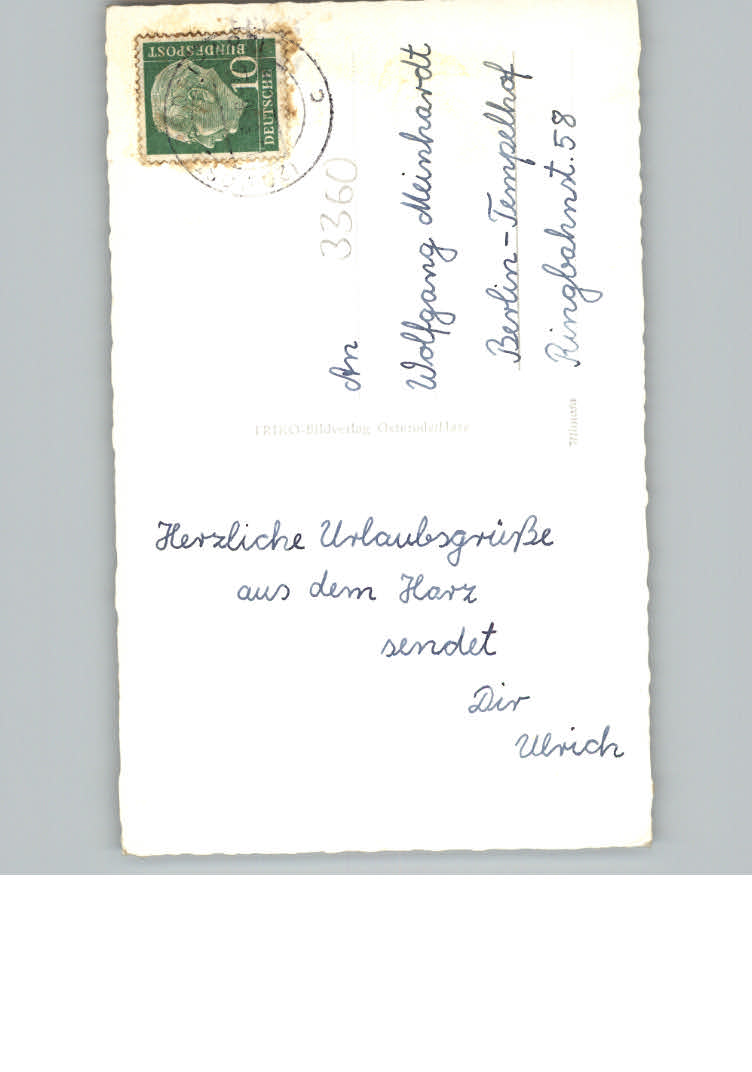 DEUTSCHE
BUNDESPOST
10
c
3360
An
Wolfgang Meinhardt
Berlin-Tempelhof
Ringbahnst. 58
FRIKO-Bildverlag Osterode/Harz
Herzliche Urlaubsgrüße
aus dem Harz
sendet
Dir
Ulrich